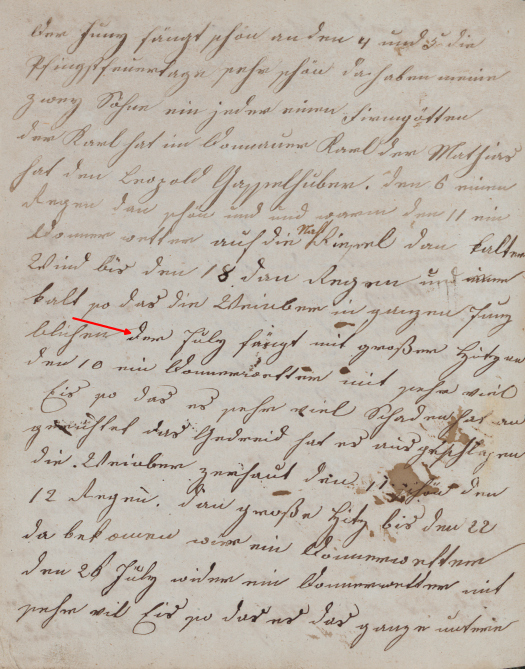 der Juny fängt schön an den 4 und 5 die
Pfingstfeuertage sehr schön da haben meine
zwey Söhne ein jeder einen Firmgötten
der Karl hat im Donnauer Karl der Mathias
hat den Leopold Gasselhuber. den 6 einen
Regen dan schön und und warm den 11 ein
Donner wetter auf die Nacht Riesel dan kalter
Wind bis den 18. dan Regen und immer
kalt so das die Weinber in ganzen Juny
blichen der July fängt mit großer Hitz an
den 10 ein Donnerwetter mit sehr viel
Eis so das es sehr viel Schaden hat an
gerichtet das Gedreid hat es aus geschlagen
die Weinber zerhaut den 11 schön den
12 Regen. dan große Hitz bis den 22
da bekomen wier ein Donnerwetter
den 26 July wider ein Donnerwetter mit
sehr vil Eis so das es das ganze untere